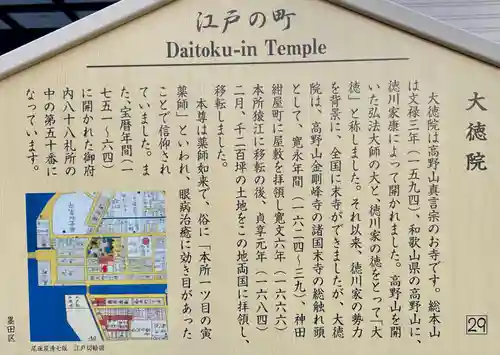 江戸の町
Daitoku-in Temple
大徳院
大徳院は高野山真言宗のお寺です。総本山
は文禄三年（一五九四）、和歌山県の高野山に、
徳川家康によって開かれました。高野山を開
いた弘法大師の大と、徳川家の徳をとって「大
徳」と称しました。それ以来、徳川家の勢力
を背景に、全国に末寺ができましたが、大徳
院は、高野山金剛峰寺の諸国末寺の総触れ頭
として、寛永年間（一六二四～三九）、神田
紺屋町に屋敷を拝領し寛文六年（一六六六）
本所猿江に移転の後、貞享元年（一六八四）
二月、千二百坪の土地をこの地両国に拝領し、
移転しました。
本尊は薬師如来で、俗に「本所一ツ目の寅
薬師」といわれ、眼病治癒に効き目があった
ことで信仰され
ていました。ま
た、宝暦年間（一
七五一～六四）
に開かれた御府
内八十八札所の
中の第五十番に
なっています。
29
尾張屋清七版 江戸切絵図
墨田区